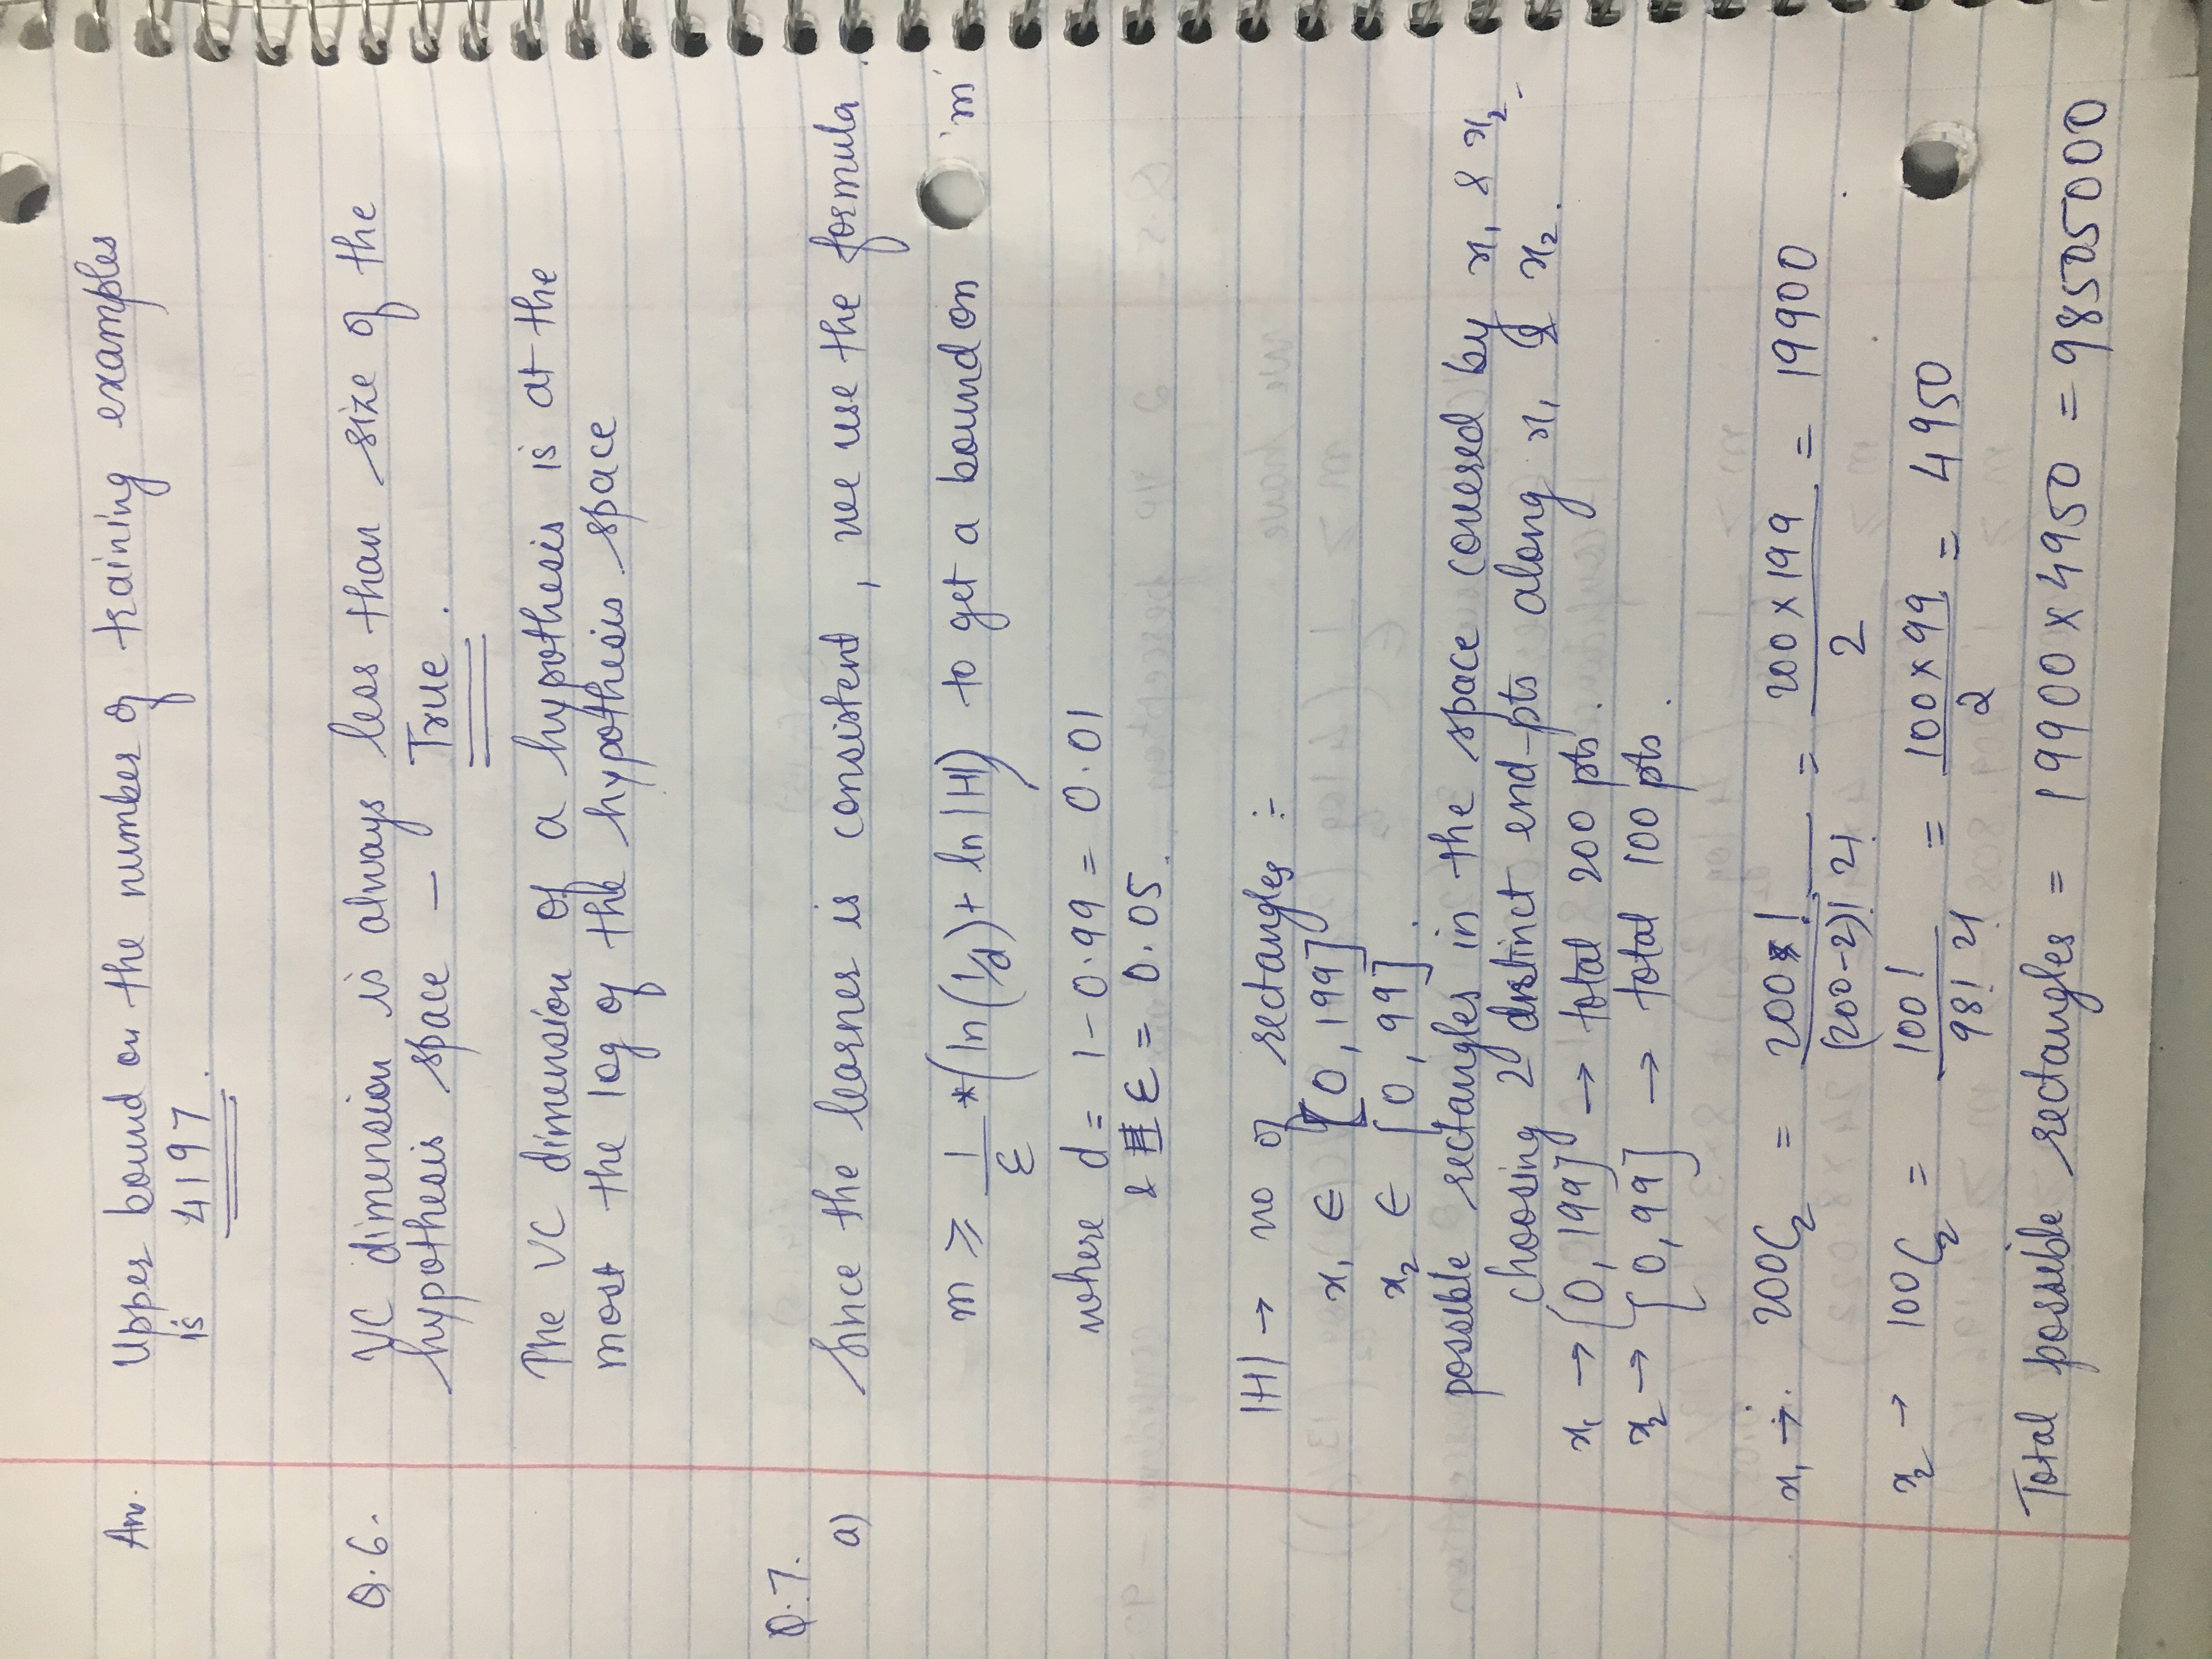 Ans. Upper bound on the number of training examples
is 4197.
Q.6. VC dimension is always less than size of the
hypothesis space – True.
The VC dimension of a hypothesis is at the
most the log of the hypothesis space
Q.7.
a) Since the learner is consistent, we use the formula.
m ≥ 1/ε *(ln(1/d) + ln|H|) to get a bound on 'm'
where d = 1-0.99 = 0.01
& ε = 0.05.
|H| → no of rectangles :-
x₁ ∈ [0, 199]
x₂ ∈ [0, 99].
possible rectangles in the space covered by x₁ & x₂
choosing 2 distinct end-pts along x₁ & x₂.
x₁ → [0, 199] → total 200 pts.
x₂ → [0, 99] → total 100 pts.
x₁ → 200C₂ = 200! / (200-2)! 2! = 200 x 199 / 2 = 19900
x₂ → 100C₂ = 100! / 98! 2! = 100 x 99 / 2 = 4950
Total possible rectangles = 19900 x 4950 = 98505000